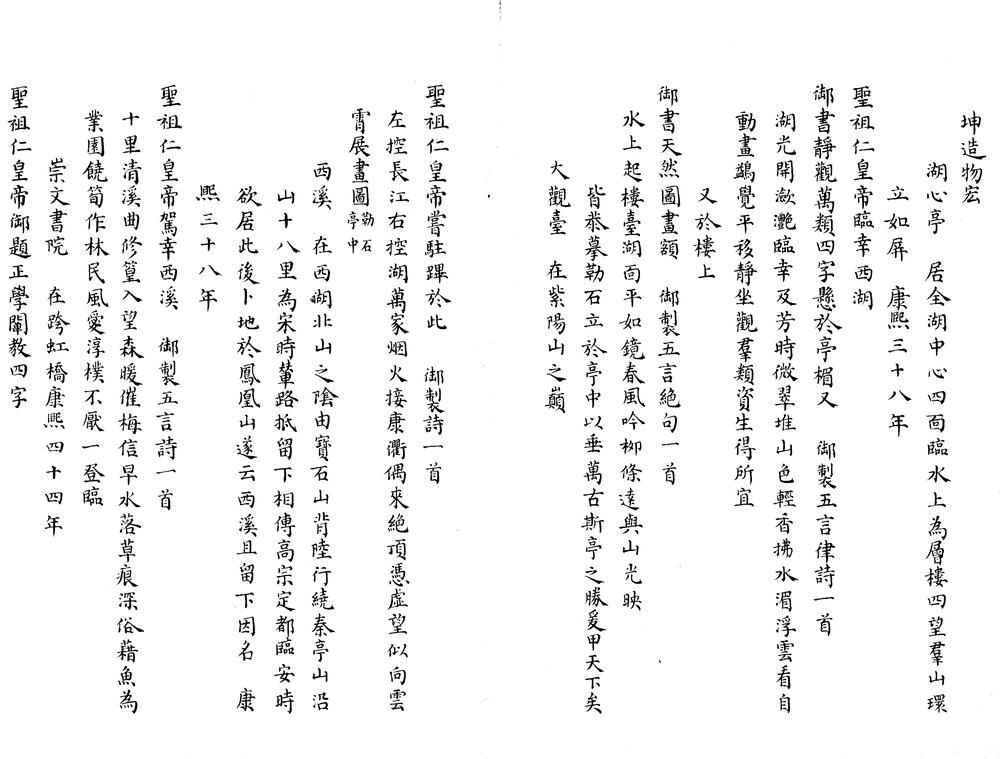 坤造物宏
湖心亭　居全湖中心四面臨水上為層樓四望羣山環
立如屏　康熙三十八年
聖祖仁皇帝臨幸西湖
御書靜觀萬類四字懸於亭楣又　御製五言律詩一首
湖光開潋灧臨幸及芳時微翠堆山色輕香拂水湄浮雲看自
動畫鷁覺平移靜坐觀羣類資生得所宜
又於樓上
御書天然圖畫額　御製五言絕句一首
水上起樓臺湖面平如鏡春風吟柳條遠與山光映
皆恭摹勒石立於亭中以垂萬古斯亭之勝爰甲天下矣
大觀臺　在紫陽山之巔
聖祖仁皇帝嘗駐蹕於此　御製詩一首
左控長江右控湖萬家烟火接康衢偶來絕頂憑虛望似向雲
霄展畫圖勒石亭中
西溪　在西湖北山之陰由寶石山背陸行繞秦亭山沿
山十八里為宋時輦路抵留下相傳高宗定都臨安時
欲居此後卜地於鳳凰山遂云西溪且留下因名　康
熙三十八年
聖祖仁皇帝駕幸西溪　御製五言詩一首
十里清溪曲修篁入望森暖催梅信早水落草痕深俗藉魚為
業園饒筍作林民風愛淳樸不厭一登臨
崇文書院　在跨虹橋康熙四十四年
聖祖仁皇帝御題正學闡教四字